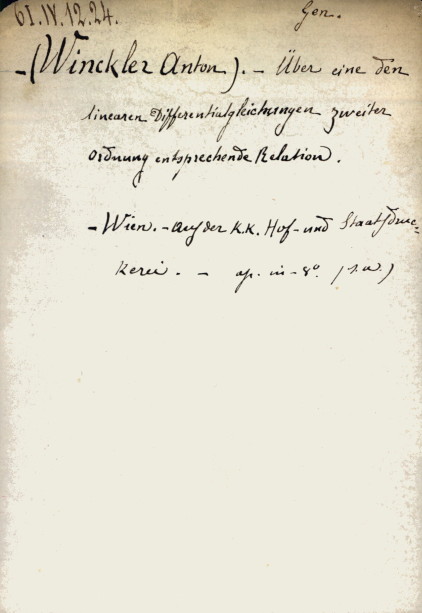 61.IV.12.24.
Gen.
-(Winckler Anton). - Über eine den
linearen Differentialgleichungen zweiter
Ordnung entsprechende Relation.
- Wien. - Auf der K.K. Hof- und Staatsdruc-
kerei. - op. in-8º. (s.a.)